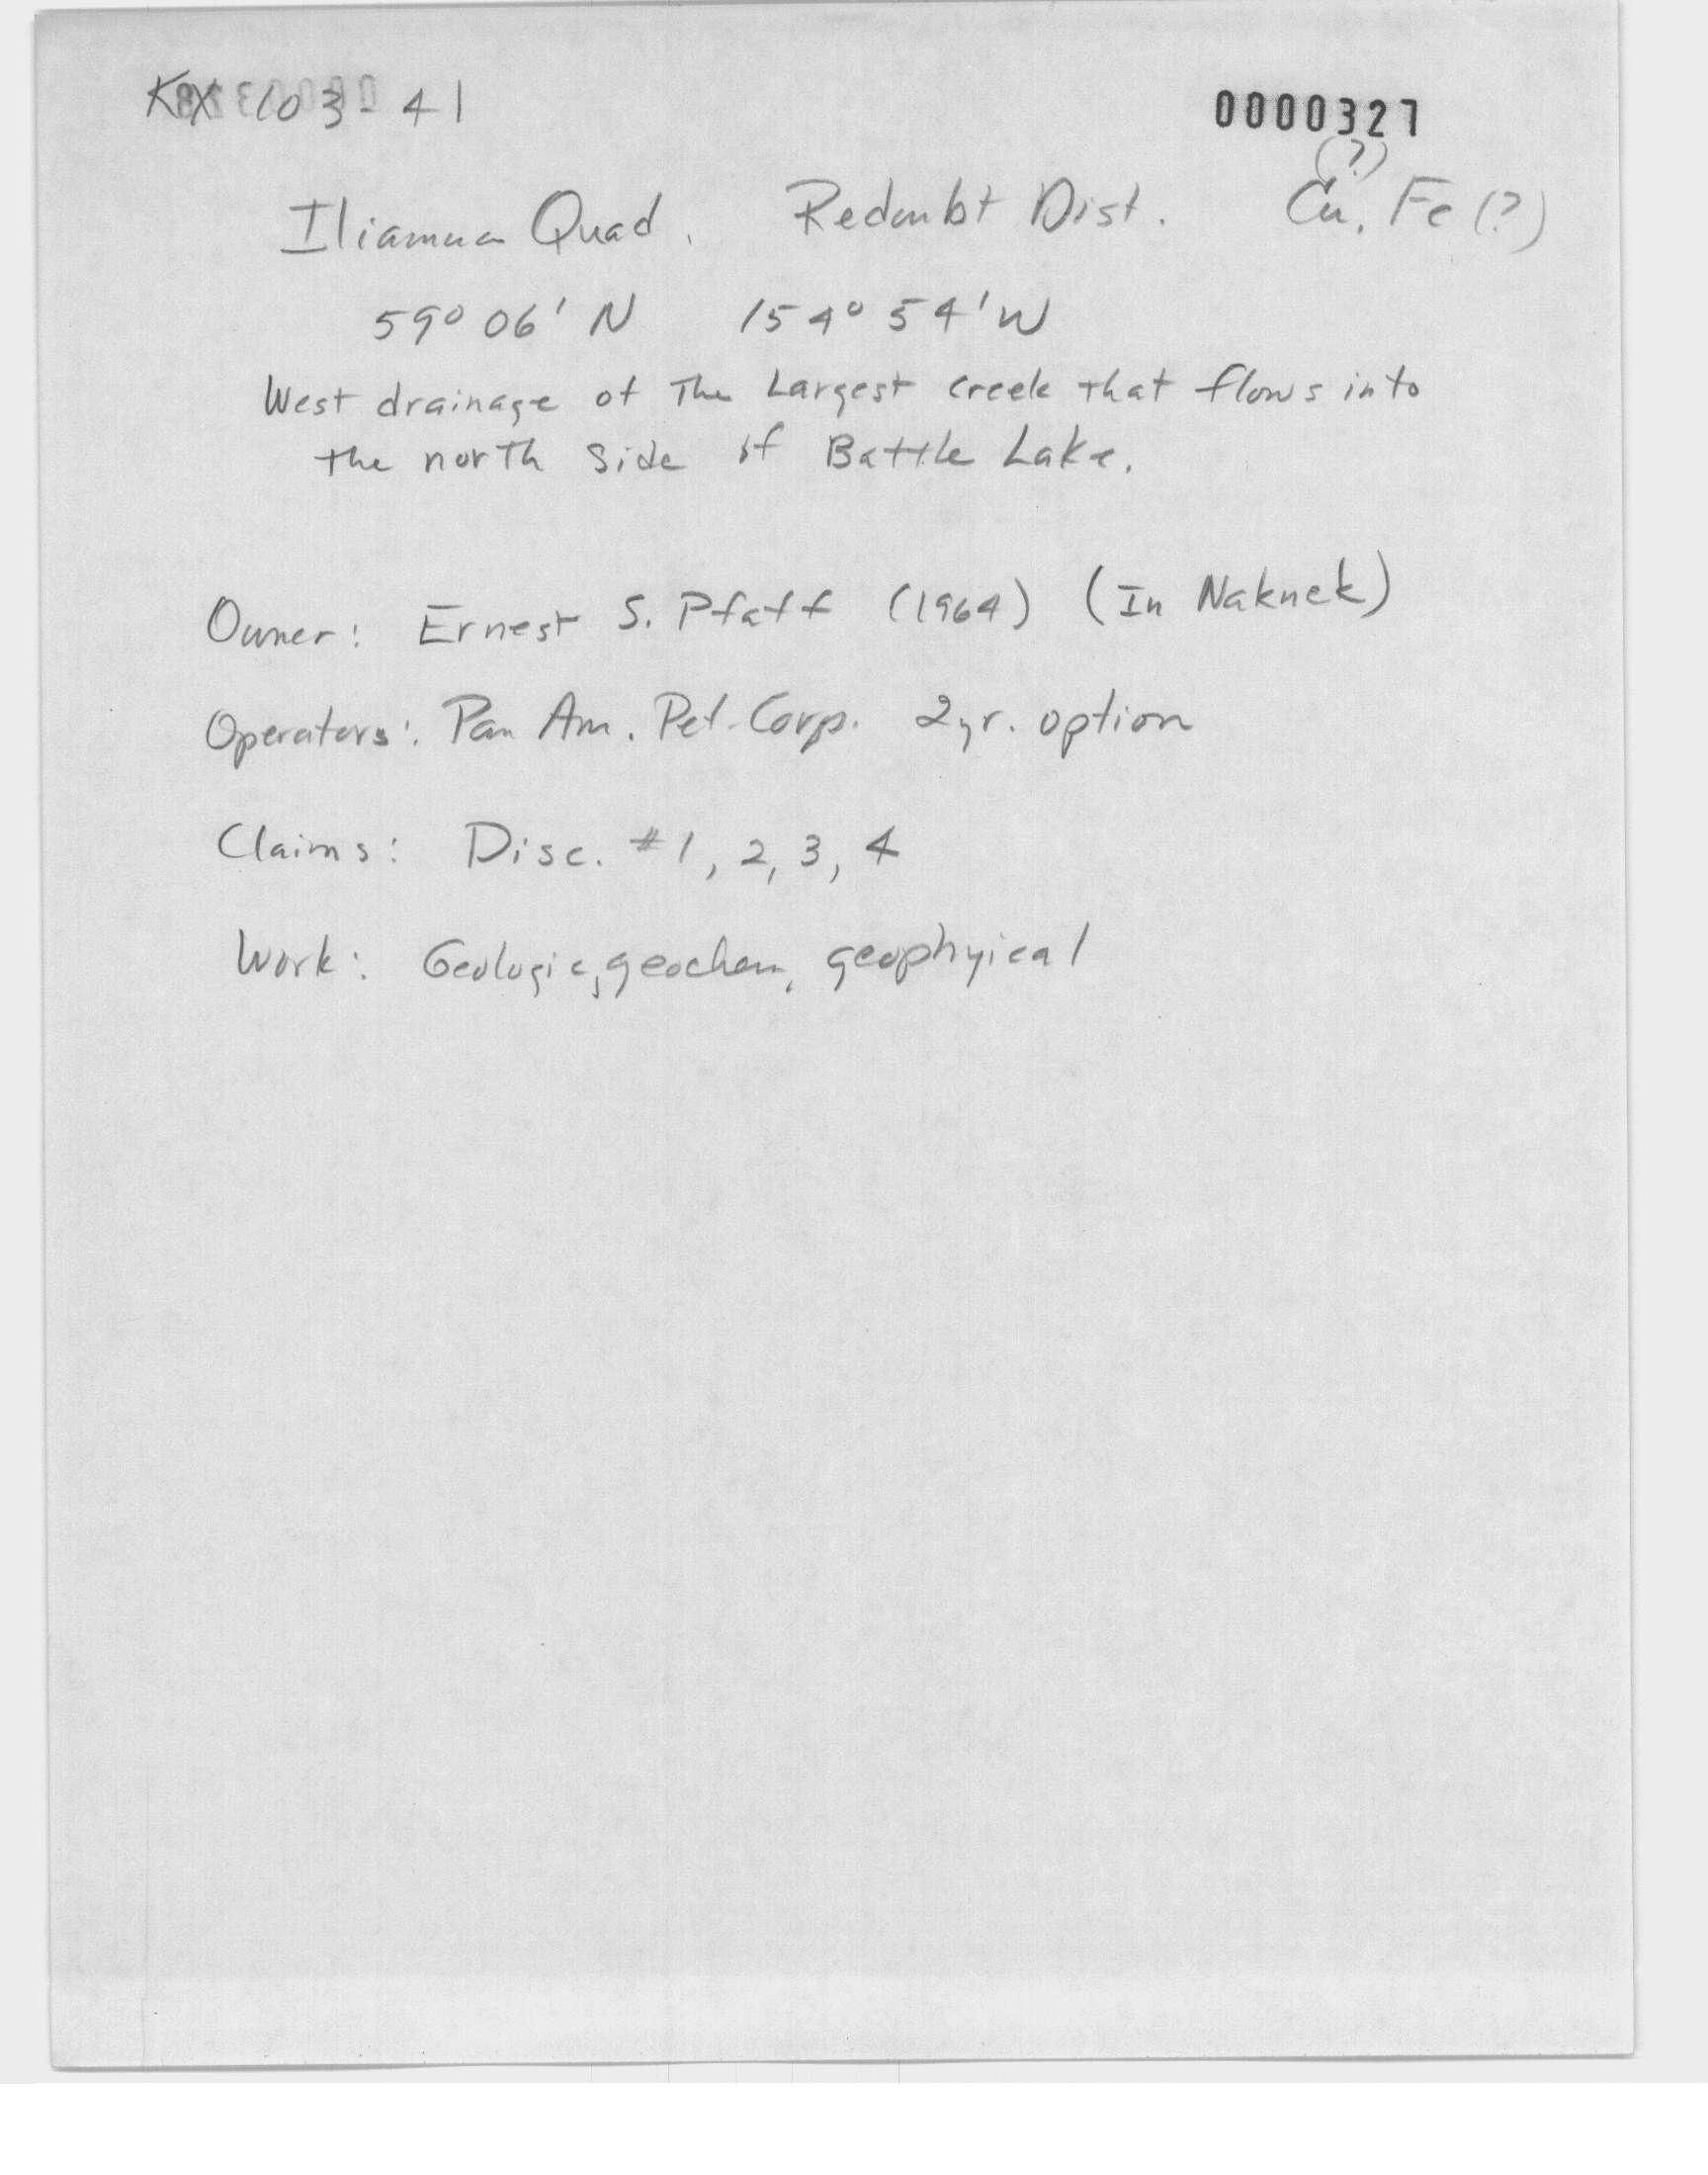 KX 103-41
0000327
(?)
Iliamna Quad. Redoubt Dist. Cu, Fe (?)
59° 06' N 154° 54' W
West drainage of The Largest creek that flows into
the north side of Battle Lake.
Owner: Ernest S. Pfaff (1964) (In Naknek)
Operators: Pan Am. Pet. Corp. 2 yr. option
Claims: Disc. #1, 2, 3, 4
Work: Geologic, geochem, geophyical